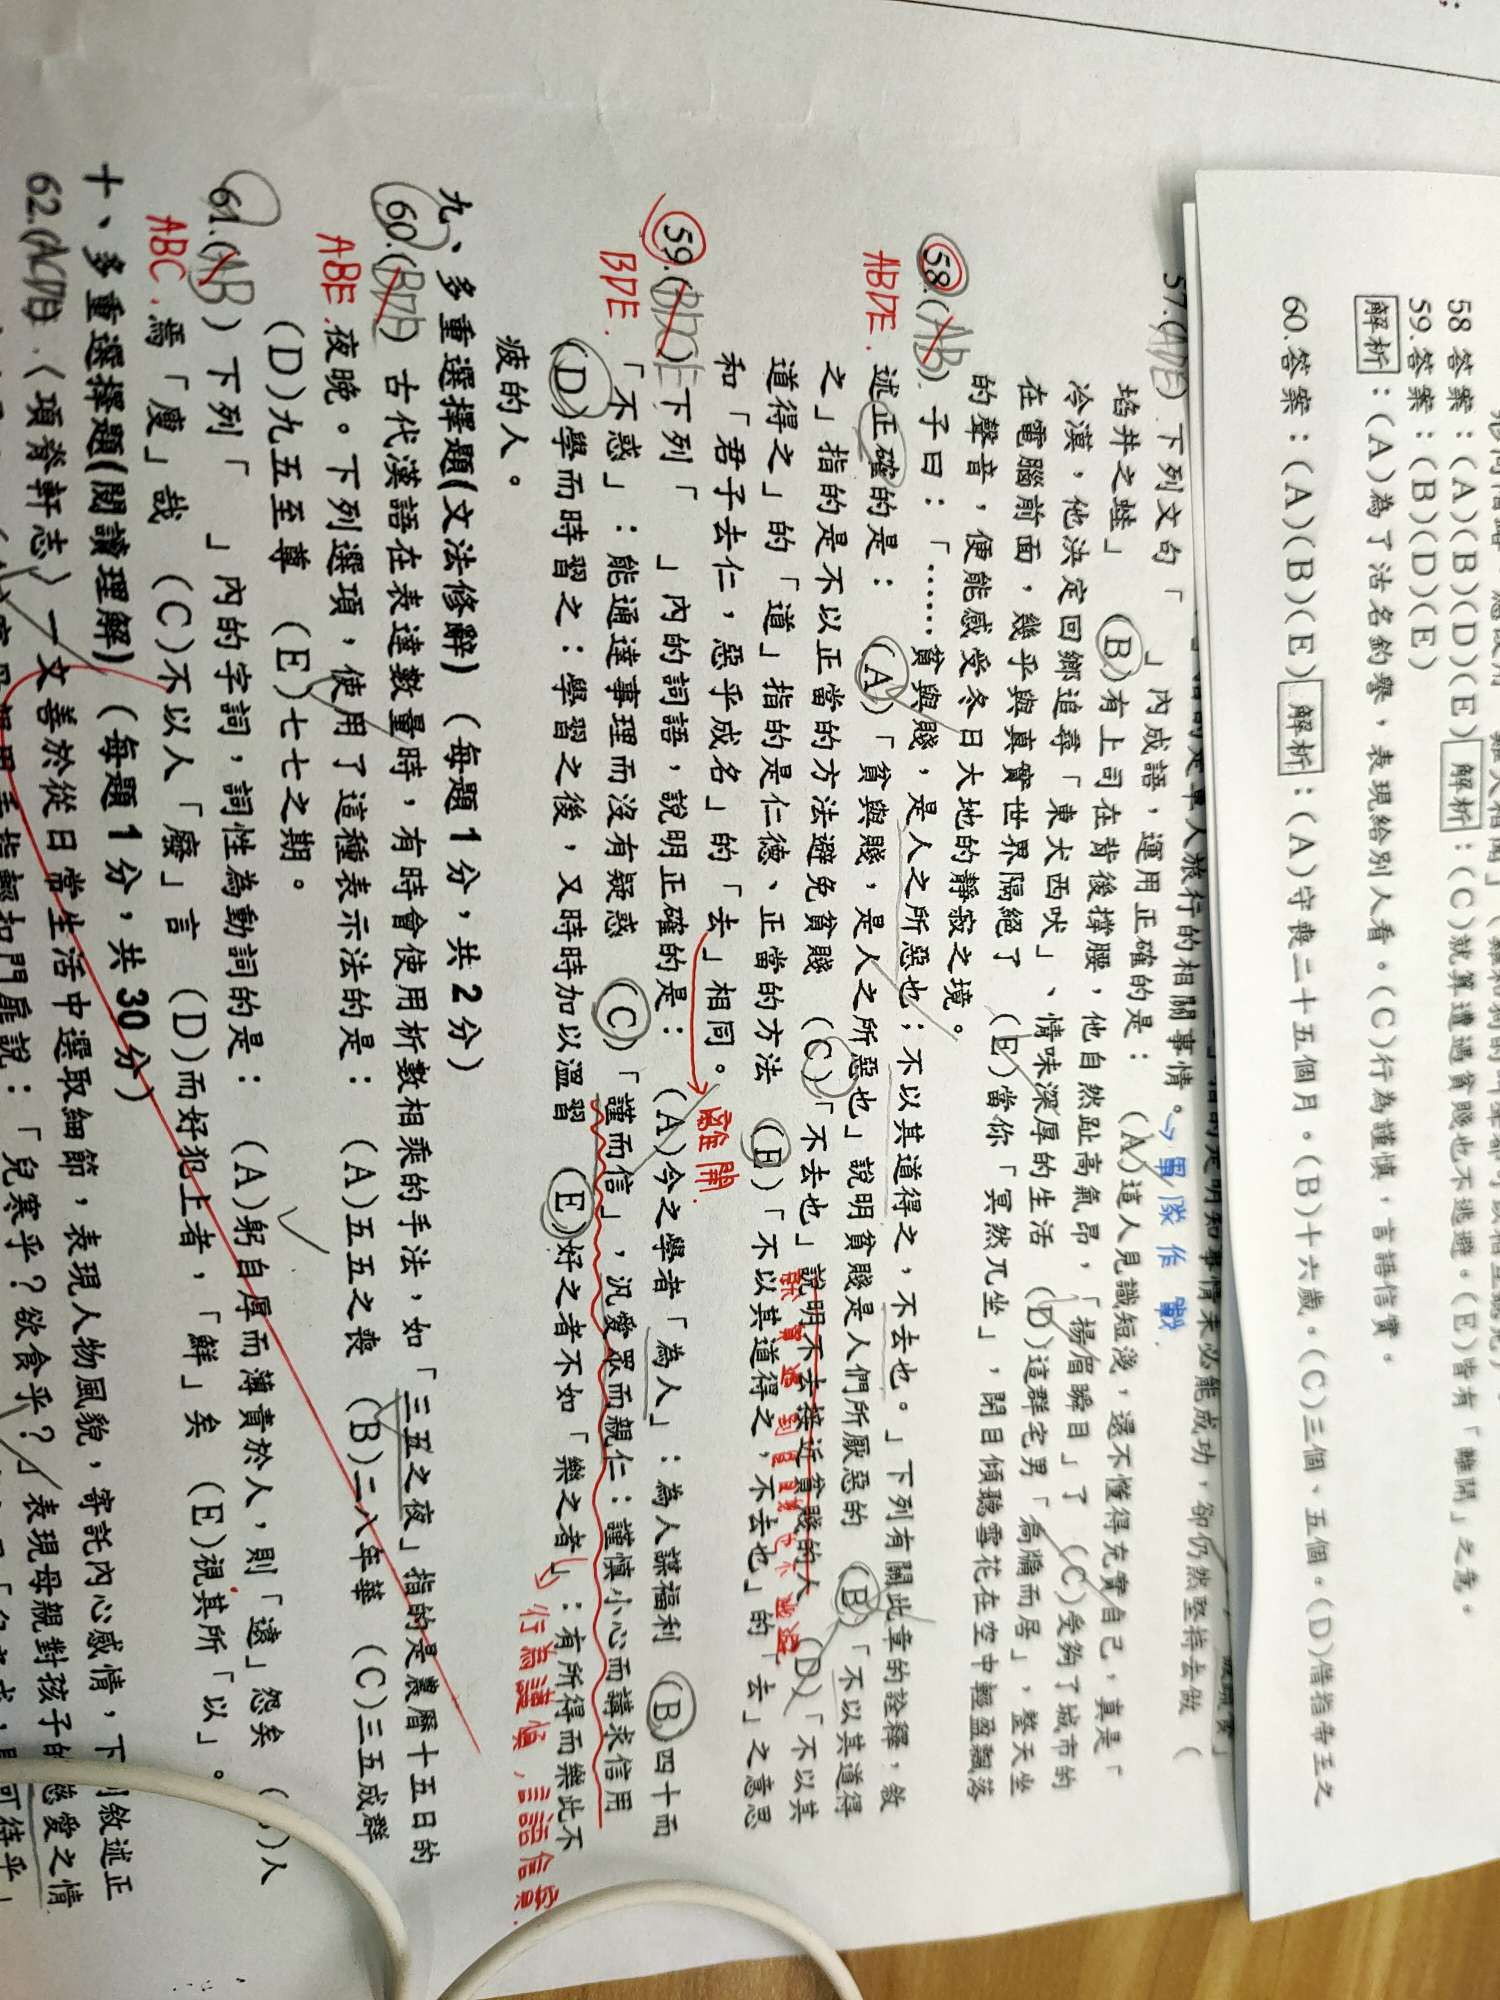 58 答案：(A)(B)(D)(E) 解析：(C)就算遭遇貧賤也不逃避。(E)皆有「離開」之意。
59.答案：(B)(D)(E)
解析：(A)為了沽名釣譽，表現給別人看。(C)行為謹慎，言語信實。
60.答案：(A)(B)(E) 解析：(A)守喪二十五個月。(B)十六歲。(C)三個、五個。(D)借指帝王之
57.(ADE) 下列文句「　」內成語，運用正確的是： (A)這人見識短淺，還不懂得充實自己，真是「
→軍隊作戰.
埳井之蛙」 (B)有上司在背後撐腰，他自然趾高氣昂，「揚眉瞬目」了 (C)受夠了城市的
冷漠，他決定回鄉追尋「東犬西吠」、情味深厚的生活 (D)這群宅男「扃牖而居」，整天坐
在電腦前面，幾乎與真實世界隔絕了 (E)當你「冥然兀坐」，閉目傾聽雪花在空中輕盈飄落
的聲音，便能感受冬日大地的靜寂之境。
58.(AB) 子曰：「……貧與賤，是人之所惡也；不以其道得之，不去也。」下列有關此章的詮釋，敘
ABDE.
述正確的是： (A)「貧與賤，是人之所惡也」說明貧賤是人們所厭惡的 (B)「不以其道得
之」指的是不以正當的方法避免貧賤 (C)「不去也」說明不去接近貧賤的人 (D)「不以其
道得之」的「道」指的是仁德、正當的方法 (E)「不以其道得之，不去也」的「去」之意思
和「君子去仁，惡乎成名」的「去」相同。
離開.
59.(BD) 下列「　」內的詞語，說明正確的是： (A)今之學者「為人」：為人謀福利 (B)四十而
BDE.
「不惑」：能通達事理而沒有疑惑 (C)「謹而信」，汎愛眾而親仁：謹慎小心而講求信用
(D)學而時習之：學習之後，又時時加以溫習 (E)好之者不如「樂之者」：有所得而樂此不
行為謹慎，言語信實.
疲的人。
九、多重選擇題(文法修辭) (每題 1 分，共 2 分)
60.(BD) 古代漢語在表達數量時，有時會使用析數相乘的手法，如「三五之夜」指的是農曆十五日的
ABE.
夜晚。下列選項，使用了這種表示法的是： (A)五五之喪 (B)二八年華 (C)三五成群
(D)九五至尊 (E)七七之期。
61.(AB) 下列「　」內的字詞，詞性為動詞的是： (A)躬自厚而薄責於人，則「遠」怨矣
ABC.
人焉「廋」哉 (C)不以人「廢」言 (D)而好犯上者，「鮮」矣 (E)視其所「以」。
十、多重選擇題(閱讀理解) (每題 1 分，共 30 分)
62.(ACDE) 〈項脊軒志〉一文善於從日常生活中選取細節，表現人物風貌，寄託內心感情，下列敘述正